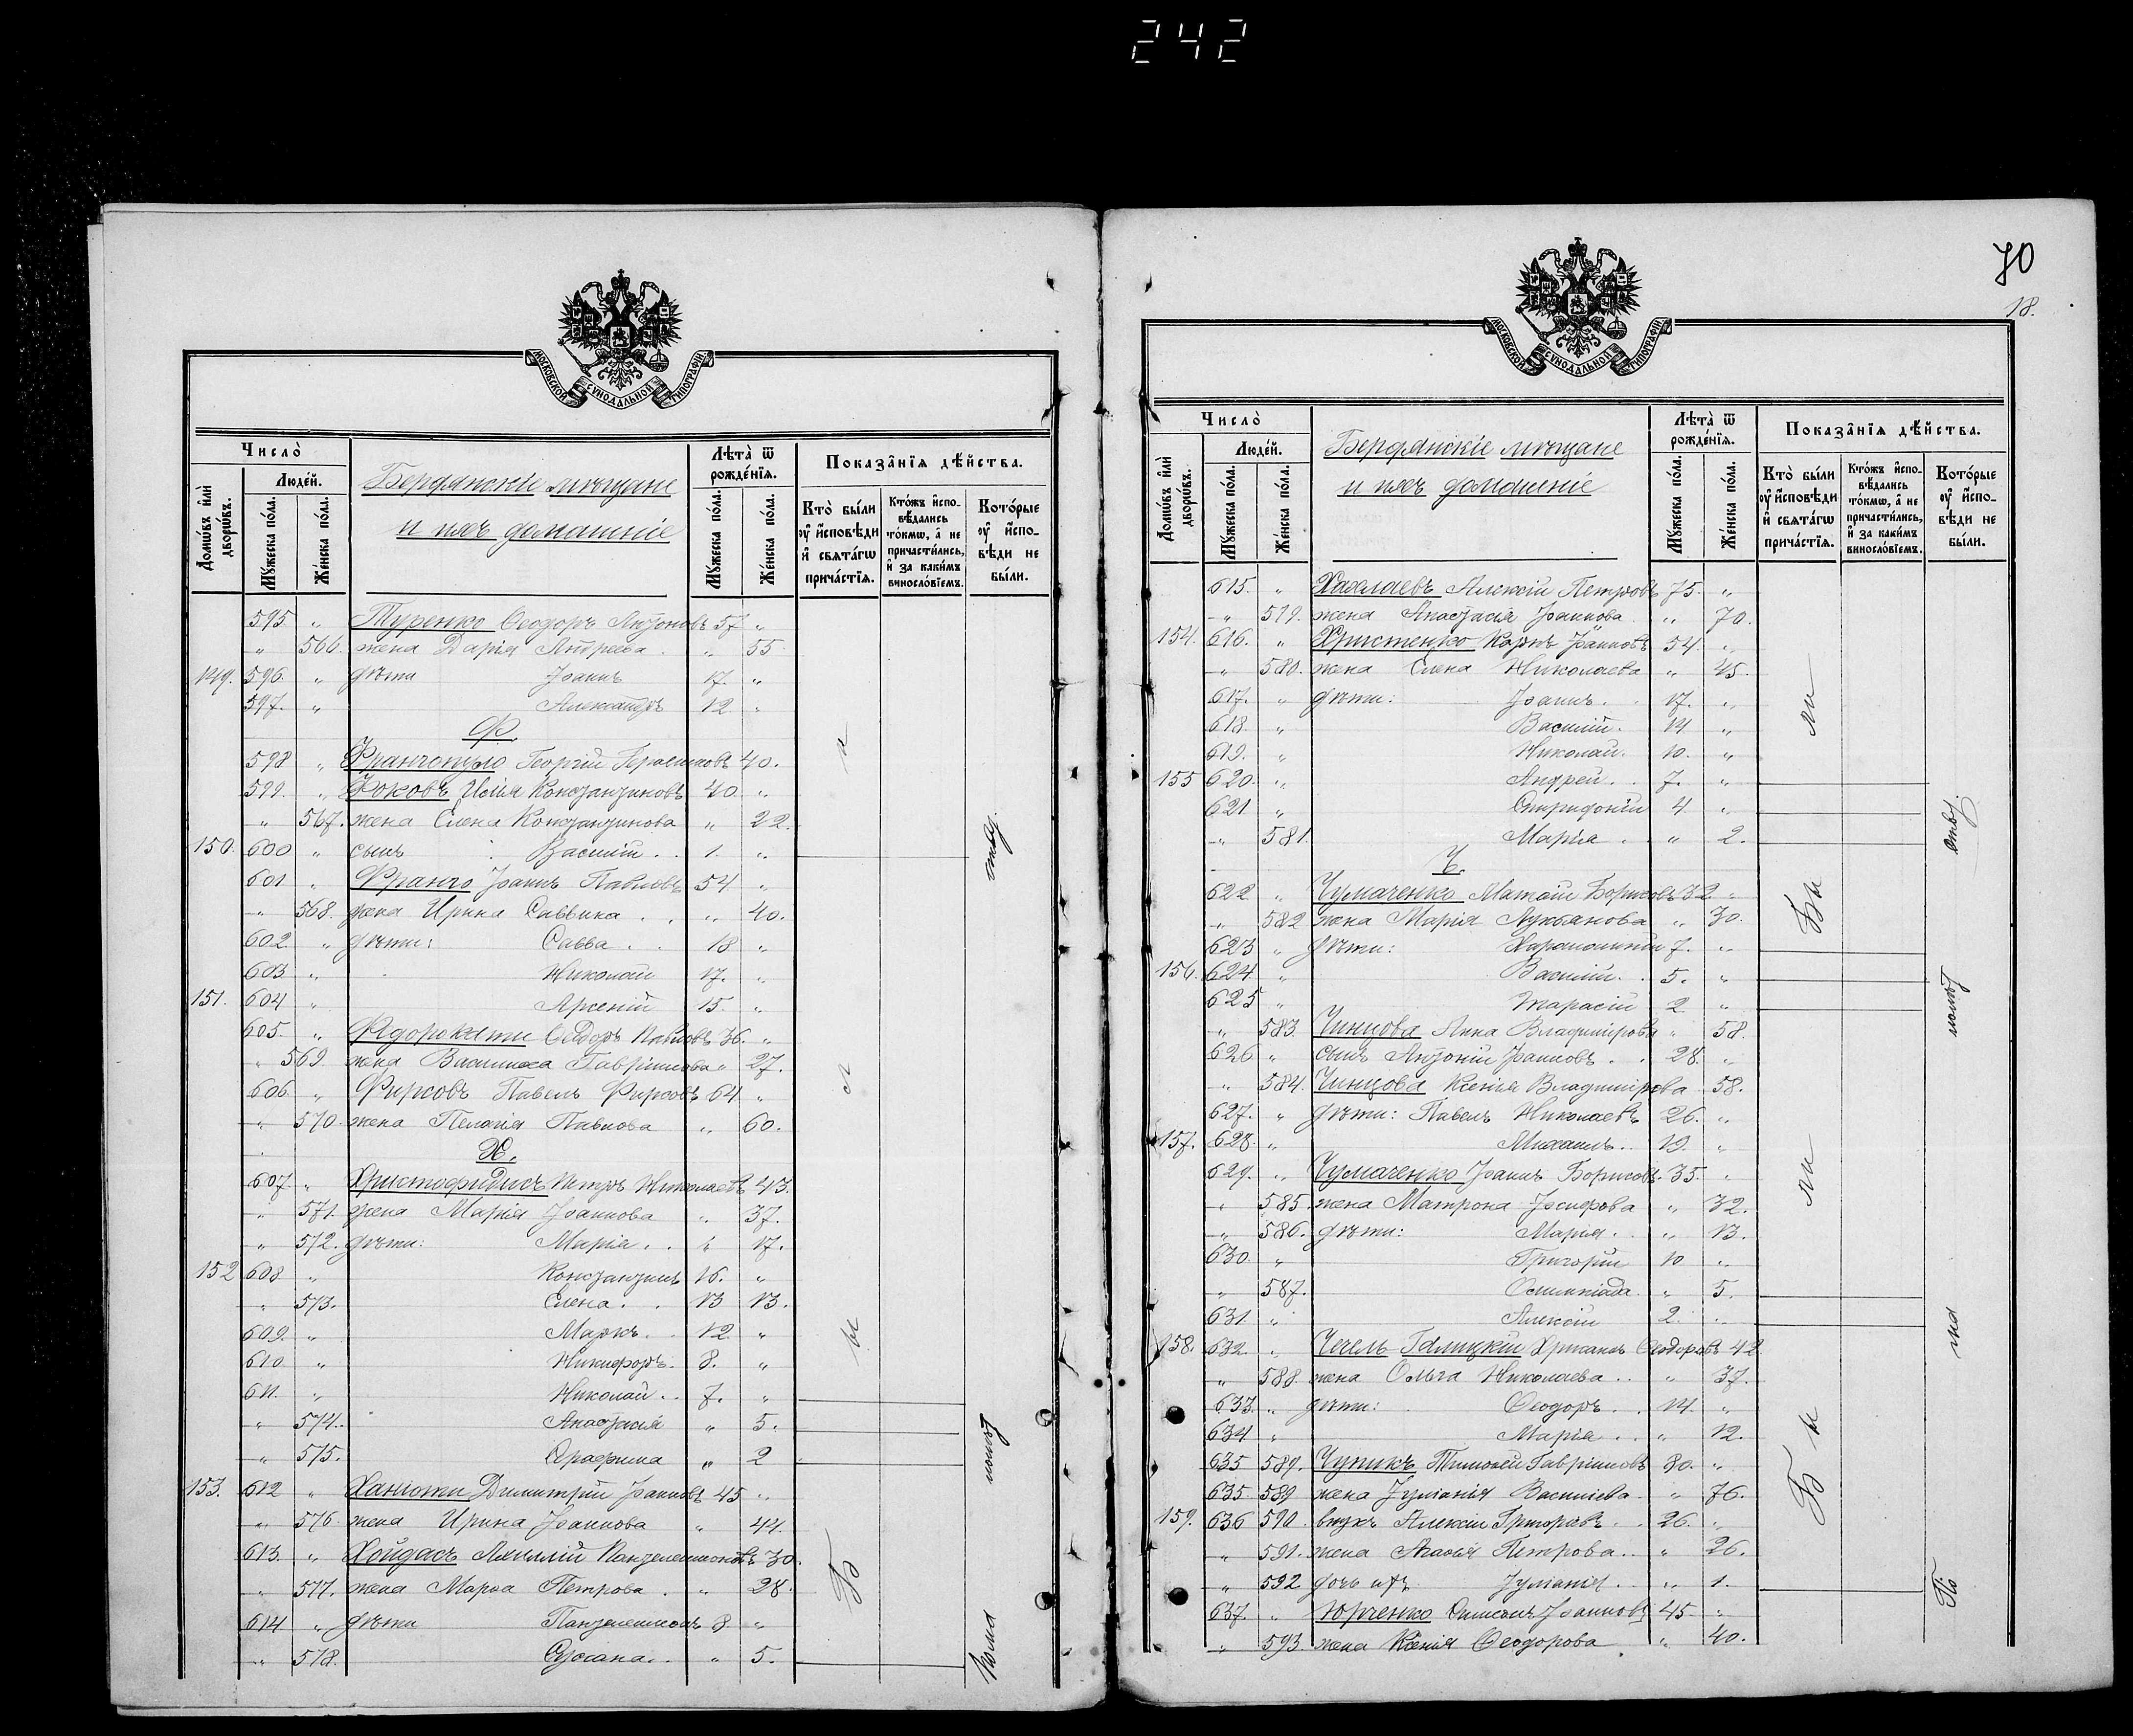 242
МОСКОВСКОЙ СѴНОДАЛЬНОЙ ТИПОГРАФІИ
Число̀
Лѣта̀ ѿ рождéнїя.
Показáнїя дѣ́йства.
Домѡ́въ и҆лѝ дворѡ́въ.
Людéй.
Мꙋ́жеска по́ла.
Же́нска по́ла.
Бердянскіе мѣщане
и ихъ домашніе
Мꙋ́жеска по́ла.
Же́нска по́ла.
Кто̀ бы́ли ᲂу҆ и҆́сповѣди и҆ свѧта́гѡ прича́стїѧ.
Кто́жъ и҆спо-вѣ́дались то́кмѡ, а҆ не причасти́лись, и҆ за каки́мъ винослóвїемъ.
Кото́рые ᲂу҆ и҆спо-вѣди не бы́ли.
595 " Туренко Ѳеодоръ Антоновъ 57 "
" 566. жена Дарія Андреева " 55
149. 596. " дѣти Іоаннъ 17. "
597. " Александръ 12 "
Ф.
598 " Франчопуло Георгій 40.
599. " Фоковъ Илія Константиновъ 40 "
" 567. жена Елена Константинова " 22.
150. 600 " сынъ Василій 1. "
601 " Франго Іоаннъ Павловъ 54 "
" 568. жена Ирина Саввина " 40.
602 " дѣти: Савва 18 "
603 " Николай 17. "
151. 604 " Арсеній 15. "
605. " Ѳеодоръ Павловъ 36. "
" 569. жена Василиса Гавріилова " 27.
606. " Фирсовъ Павелъ Фирсовъ 64 "
" 570. жена Пелагія Павлова " 60.
Х.
607 " Христофидисъ Петръ Николаевъ 43.
" 571. жена Марія Іоаннова " 37.
" 572. дѣти: Марія " 17.
152 608 " Константинъ 16. "
" 573. Елена 13 13.
609. " Маркъ 12 "
610 " Никифоръ 8. "
611. " Николай 7. "
" 574. Анастасія " 5.
" 575. Серафима " 2
153. 612 " Ханіоти Димитрій Іоанновъ 45 "
" 576 жена Ирина Іоаннова " 44.
613. " Хойдасъ Ахиллій Пантелеимоновъ 30.
" 577. жена Марѳа Петрова " 28.
614 " дѣти Пантелеимонъ 8 "
" 578. Сусанна " 5.
Бы ли
70
18.
МОСКОВСКОЙ СѴНОДАЛЬНОЙ ТИПОГРАФІИ
Число̀
Лѣта̀ ѿ рождéнїя.
Показáнїя дѣ́йства.
Домѡ́въ и҆лѝ дворѡ́въ.
Людéй.
Мꙋ́жеска по́ла.
Же́нска по́ла.
Бердянскіе мѣщане
и ихъ домашніе
Мꙋ́жеска по́ла.
Же́нска по́ла.
Кто̀ бы́ли ᲂу҆ и҆́сповѣди и҆ свѧта́гѡ прича́стїѧ.
Кто́жъ и҆спо-вѣ́дались то́кмѡ, а҆ не причасти́лись, и҆ за каки́мъ винослóвїемъ.
Кото́рые ᲂу҆ и҆спо-вѣди не бы́ли.
615. " Хахлаевъ Алексій Петровъ 75. "
" 579. жена Анастасія Іоаннова " 70.
154. 616. " Христенко Карпъ Іоанновъ 54. "
" 580. жена Елена Николаева " 45.
617. " дѣти: Іоаннъ 17. "
618. " Василій 14 "
619. " Николай 10. "
155 620. " Андрей 7. "
621 " Спиридонъ 4 "
" 581. Марія " 2.
Ч.
622 " Чумаченко Матѳій Борисовъ 32 "
" 582 жена Марія Лукьянова " 30.
623 " дѣти: Харлампій 7. "
156. 624 " Василій 5. "
625 " Тарасій 2 "
" 583. Чинцова Анна Владимірова " 58.
626 " сынъ Антоній Іоанновъ 28. "
" 584. Чинцова Ксенія Владимірова 58.
627. " дѣти: Павелъ Николаевъ 26. "
157. 628. " Михаилъ 19. "
629. " Чумаченко Іоаннъ Борисовъ 35. "
" 585. жена Матрона Іосифова " 32.
" 586. дѣти: Марія " 13.
630. " Григорій 10 "
" 587. Олимпіада " 5.
631 " Алексій 2. "
158. 632. " Чечель-Галицкій Хрисанѳъ Ѳеодоровъ 42
" 588. жена Ольга Николаева " 37.
633. " дѣти: Ѳеодоръ 14. "
634 " Марія " 12.
635 589. Чупикъ Тимоѳей Гавріиловъ 80. "
635. 589 жена Іуліанія Василіева " 76.
159. 636 590. внукъ Алексій Григоріевъ 26. "
" 591. жена Петрова " 26.
" 592 дочь ихъ Іуліанія " 1.
637. " Юрченко Симеонъ Іоанновъ 45 "
" 593. жена Ксенія Ѳеодорова " 40.
Бы ли
Бы ли